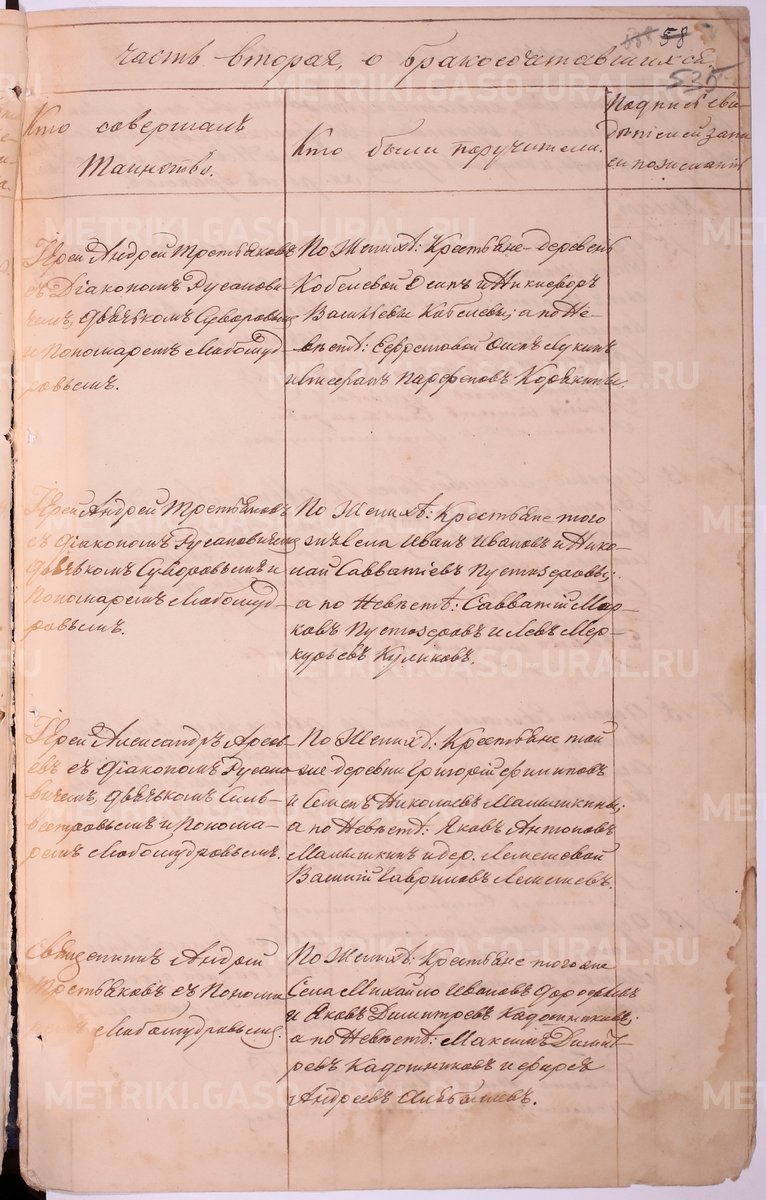 58
535
часть вторая, о бракосочетавшихся,
Кто совершалъ
Таинство.
Кто были поручители.
Подпись сви-
дѣтелей запи-
си по желанію
Іерей Андрей Третьяковъ
съ Діакономъ Русанови-
чемъ, дьячькомъ Суворовымъ
и Пономаремъ Любомуд-
ровымъ.
По Женихѣ: Крестьяне деревень
Кобелевой Осипъ и Никифоръ
Васильевы Кобелевы; а по Не-
вѣстѣ: Ефремовой Осипъ Лукинъ
и Парфеновъ Корякины.
Іерей Андрей Третьяковъ
съ Діакономъ Русановичемъ
дьячькомъ Суворовымъ и
Пономаремъ Любомуд-
ровымъ.
По Женихѣ: Крестьяне того
же Села Иванъ Ивановъ и Нико-
лай Савватіевъ Пустозеровы;
а по Невѣстѣ: Савватій Мар-
ковъ Пустозеровъ и Левъ Мер-
курьевъ Куликовъ.
Іерей Александръ
съ Діакономъ Русано-
вичемъ, дьячькомъ Силь-
вестровымъ и Понома-
ремъ Любомудровымъ.
По Женихѣ: Крестьяне той
же деревни Григорій Филиповъ
и Семенъ Николаевъ Малышкины;
а по Невѣстѣ: Яковъ Антоновъ
Малышкинъ и дер. Лемешевой
Василій Гавриловъ Лемешевъ.
Священникъ Андрей
Третьяковъ съ Понома-
ремъ Любомудровымъ.
По Женихѣ: Крестьяне того же
Села Михайло Ивановъ
и Яковъ Димитревъ Кадошниковъ;
а по Невѣстѣ: Максимъ Димит-
ревъ Кадошниковъ и
Андреевъ
METRIKI.GASO-URAL.RU